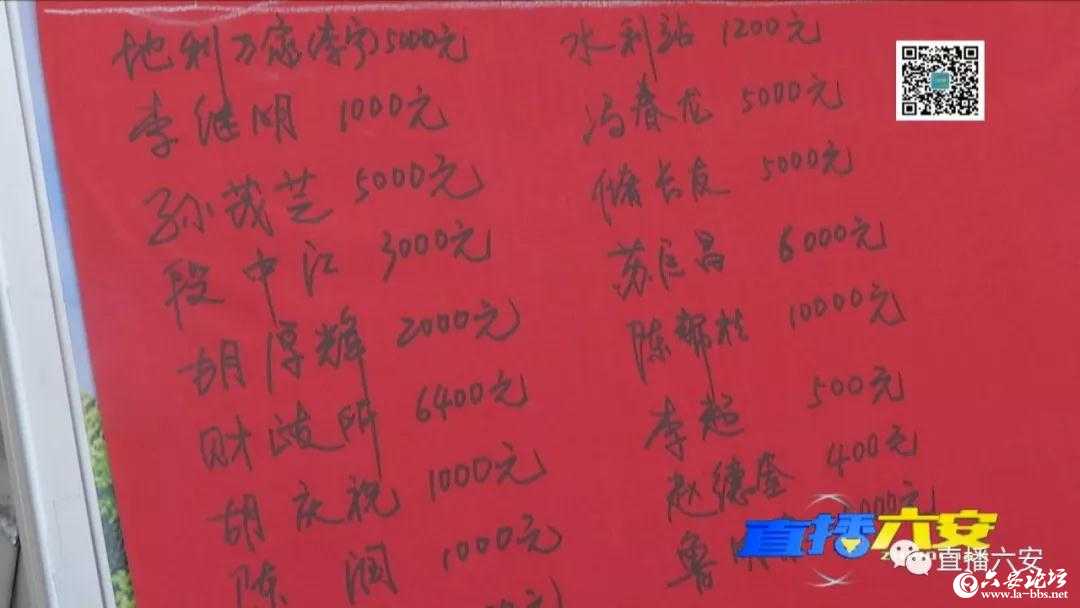 地利万家李宁5000元
李继明 1000元
孙茂芝 5000元
段中江 3000元
胡厚辉 2000元
财政所 6400元
胡庆祝 1000元
陈润 1000元
元
水利站 1200元
冯春龙 5000元
储长友 5000元
苏巨昌 6000元
陈郭柱 10000元
李超 500元
赵德奎 400元
鲁 000元
直播六安
直播六安
六安论坛
www.la-bbs.net